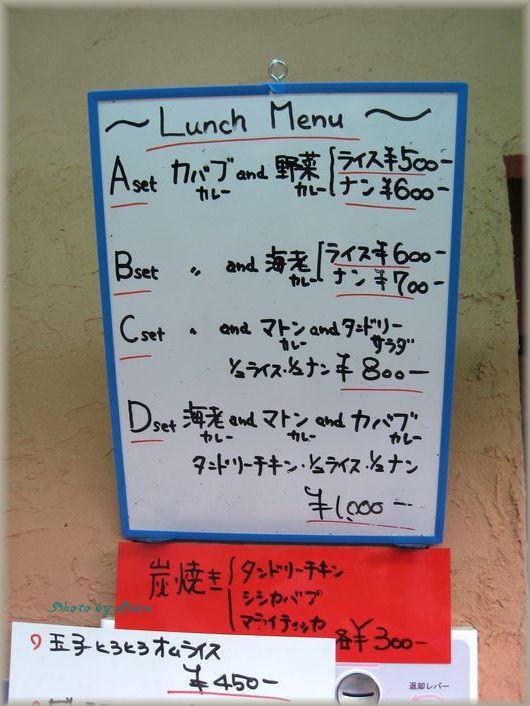 ~ Lunch Menu ~
Aset カバブカレー and 野菜カレー ライス¥500-
ナン ¥600-
Bset 〃 and 海老カレー ライス¥600-
ナン ¥700-
Cset 〃 and マトンカレー and タンドリーサラダ
½ライス・½ナン ¥800-
Dset 海老カレー and マトンカレー and カバブカレー
タンドリーチキン・½ライス・½ナン
¥1,000-
炭焼き タンドリーチキン
シシカバブ
マライティッカ 各¥300-
玉子とろとろオムライス
¥450-
返却レバー
Photo by